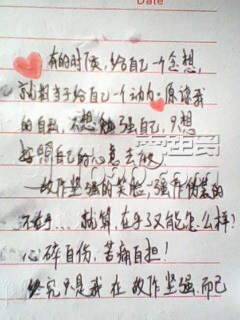 Date
有的时候,给自己一个念想,
就相当于给自己一个动力。原谅我
的自私,不想勉强自己,只想
按照自己的心意去做
故作坚强的笑脸,强作伪装的
不在乎... 就算,在乎了又能怎么样?
心碎自伤,苦痛自担!
终究只是我在故作坚强而已